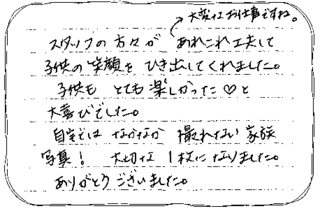 大変なお仕事ですね。
スタッフの方々が あれこれ工夫して
子供の笑顔を ひき出してくれました。
子供も とても楽しかった♡と
大喜びでした。
自宅では なかなか 撮れない 家族
写真! 大切な 1枚になりました。
ありがとうございました。